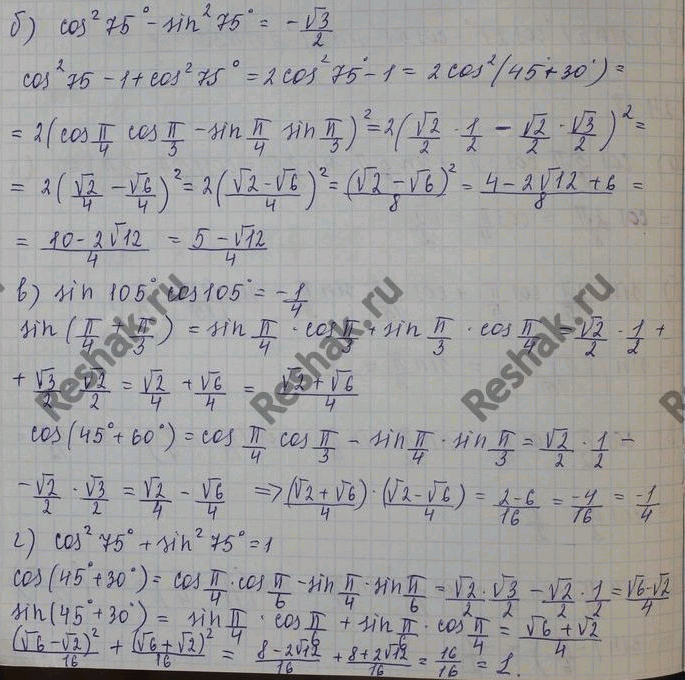 б) cos²75° - sin²75° = -√3/2
cos²75 - 1 + cos²75° = 2cos²75° - 1 = 2cos²(45°+30°) =
= 2(cos π/4 cos π/3 - sin π/4 sin π/3)² = 2(√2/2 · 1/2 - √2/2 · √3/2)² =
= 2(√2/4 - √6/4)² = 2((√2 - √6)/4)² = (√2 - √6)²/8 = (4 - 2√12 + 6)/8 =
= (10 - 2√12)/4 = (5 - √12)/4
в) sin 105° cos 105° = -1/4
sin(π/4 + π/3) = sin π/4 · cos π/3 + sin π/3 · cos π/4 = √2/2 · 1/2 +
+ √3/2 · √2/2 = √2/4 + √6/4 = (√2 + √6)/4
cos(45°+60°) = cos π/4 cos π/3 - sin π/4 · sin π/3 = √2/2 · 1/2 -
- √2/2 · √3/2 = √2/4 - √6/4 => (√2 + √6)/4 · (√2 - √6)/4 = (2-6)/16 = -4/16 = -1/4
г) cos²75° + sin²75° = 1
cos(45°+30°) = cos π/4 · cos π/6 - sin π/4 · sin π/6 = √2/2 · √3/2 - √2/2 · 1/2 = (√6-√2)/4
sin(45°+30°) = sin π/4 · cos π/6 + sin π/6 · cos π/4 = (√6 + √2)/4
(√6 - √2)²/16 + (√6 + √2)²/16 = (8 - 2√12)/16 + (8 + 2√12)/16 = 16/16 = 1.
Reshak.ru
Reshak.ru
Reshak.ru